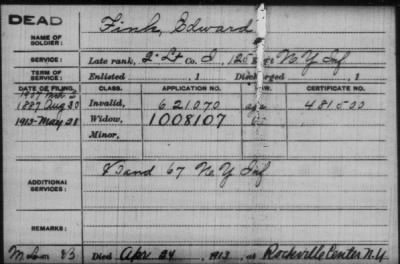 DEAD
NAME OF SOLDIER: Fink, Edward
SERVICE: Late rank, 2" Lt Co. I, 125 Reg't N Y Inf
TERM OF SERVICE: Enlisted , 1 Discharged , 1
DATE OF FILING. CLASS. APPLICATION NO. LAW. CERTIFICATE NO.
1907
1887 Aug 30 Invalid, 621070 481500
1913-May 21 Widow, 1008107
Minor,
ADDITIONAL SERVICES: & and 67 N Y Inf
REMARKS:
Died Apr 24, 1913, at Rockville Center N.Y.